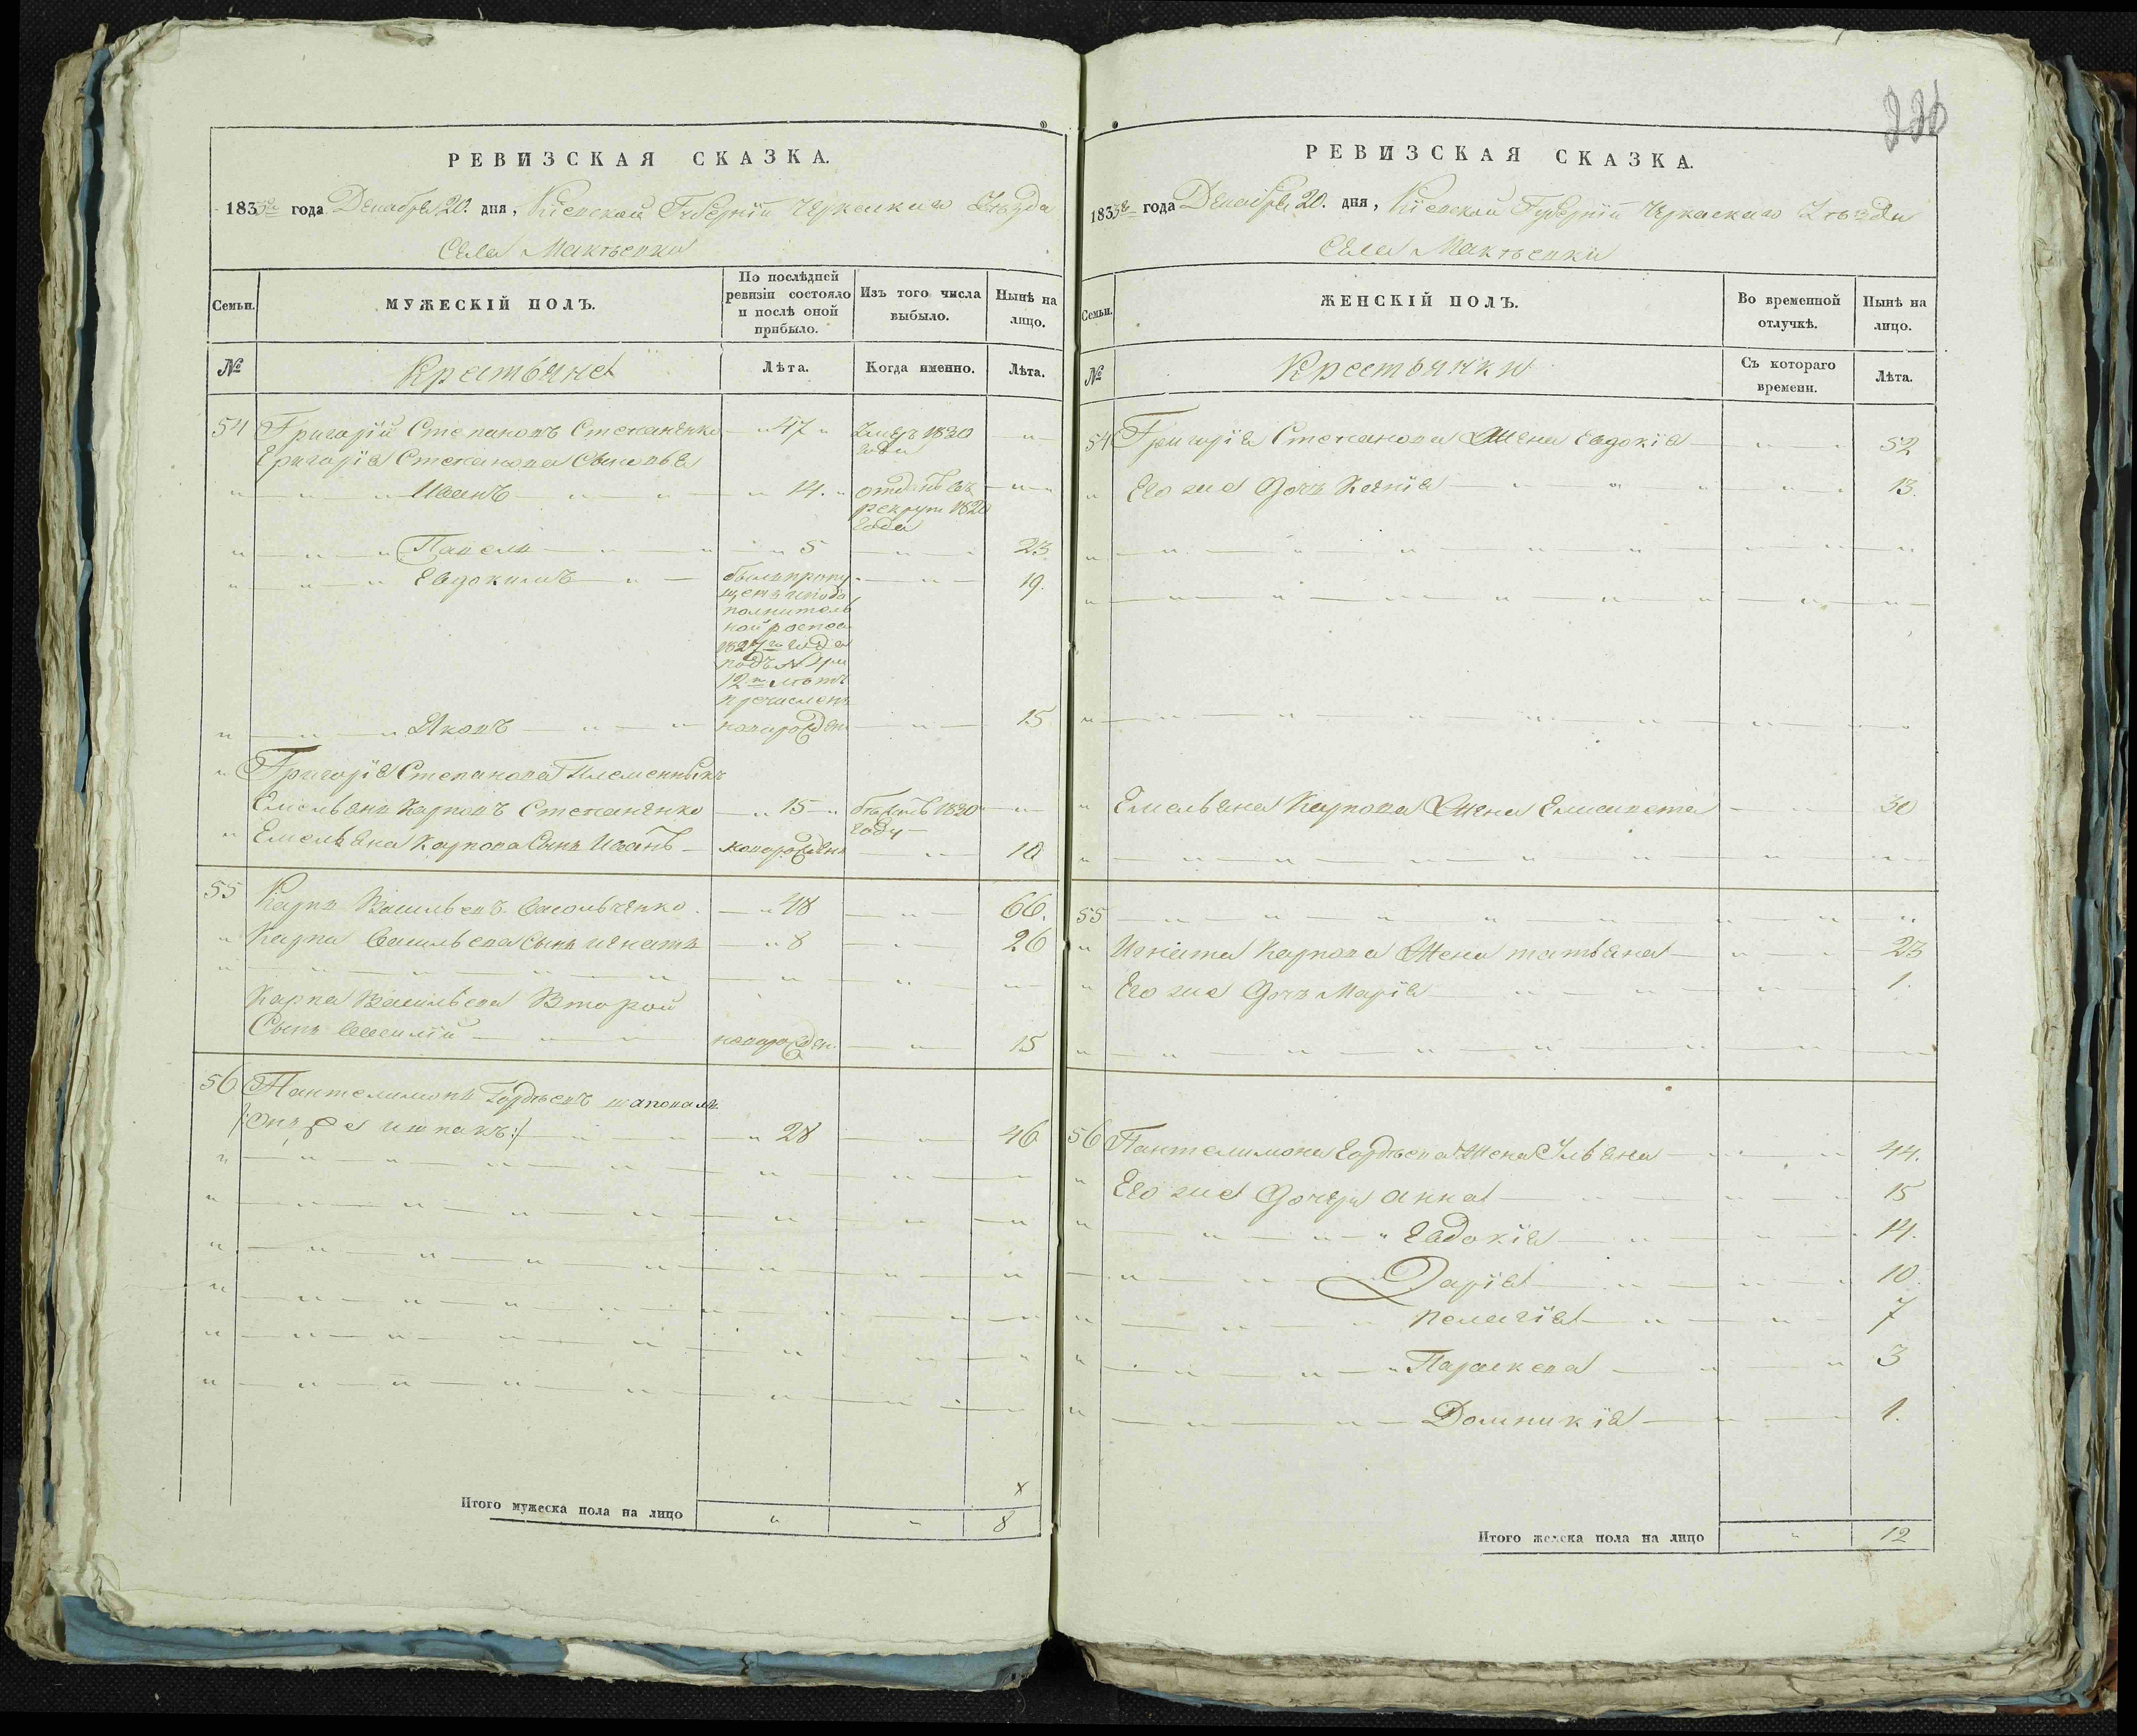 РЕВИЗСКАЯ СКАЗКА.
1833 года Декабря 20. дня, Кіевской Губерніи Черкаскаго Уѣзда
Села Макѣевки
Семьи.
МУЖЕСКІЙ ПОЛЪ.
По послѣдней ревизіи состояло и послѣ оной прибыло.
Изъ того числа выбыло.
Нынѣ на лицо.
№
Крестьяне
Лѣта.
Когда именно.
Лѣта.
54 Григорій Степановъ Степаненко — " 47 " Умеръ 1820 года — " —
Григорія Степанова Сыновья
" — " — " Иванъ — " — " — " 14. " отданъ въ рекруты 1820 года — " —
" — " — " Павелъ — " — " — " 5 — " — 23.
" — " — " Евдокимъ — " — былъ пропущенъ и по дополнительной 1827го года подъ № при 12 лѣтъ — " — 19.
" — " — " Яковъ — " — новорожден. — " — 15
" Григорія Степанова Племенникъ
Емельянъ Карповъ Степаненко — " 15 — " бѣжалъ 1820 году — " —
" Емельяна Карпова Сынъ Иванъ — новорожденъ — " — 10
55 Карпъ Васильевъ Васильченко — " 48 — " — 66.
" Карпа Васильева Сынъ Игнатъ — " 8 — " — 26
Карпа Васильева Второй
Сынъ Василій — " — новорожден. — " — 15
56 Пантелимонъ Гордѣевъ Шаповалъ
— " 28 — " — 46
х
Итого мужеска пола на лицо " " 8
226
РЕВИЗСКАЯ СКАЗКА.
1833 года Декабря 20. дня, Кіевской Губерніи Черкаскаго Уѣзда
Села Макѣевки
Семьи.
ЖЕНСКІЙ ПОЛЪ.
Во временной отлучкѣ.
Нынѣ на лицо.
№
Крестьянки
Съ котораго времени.
Лѣта.
54 Григорія Степанова Жена Евдокія — " — " 52
" Его же дочь Ксенія — " — " 13.
" Емельяна Карпова Жена Елисавета — " — 30
55 — " — " — "
" Игната Карпова Жена татьяна — " — " 23
" Его же дочь Марія — " — " — 1.
56 Пантелимона Гордѣева Жена Ульяна — " — " 44.
" Его же дочери Анна — " — " 15
" — " — " Евдокія — " — " 14.
— " — " Дарія — " — " 10.
" — " — " Пелагія — " — " 7
" — " — " Параскева — " — " 3
" — " — Домникія — " — 1.
Итого женска пола на лицо " 12